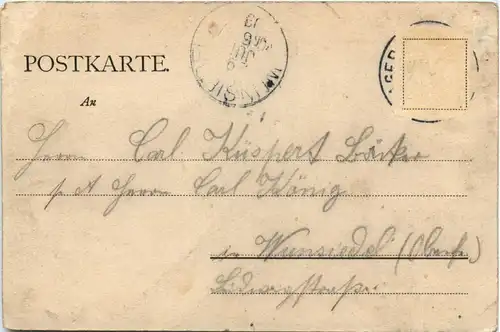 POSTKARTE.
An
Herrn Carl Küspert Bäcker
p. A Herrn Carl König
in Wunsiedel (Oberfr.)